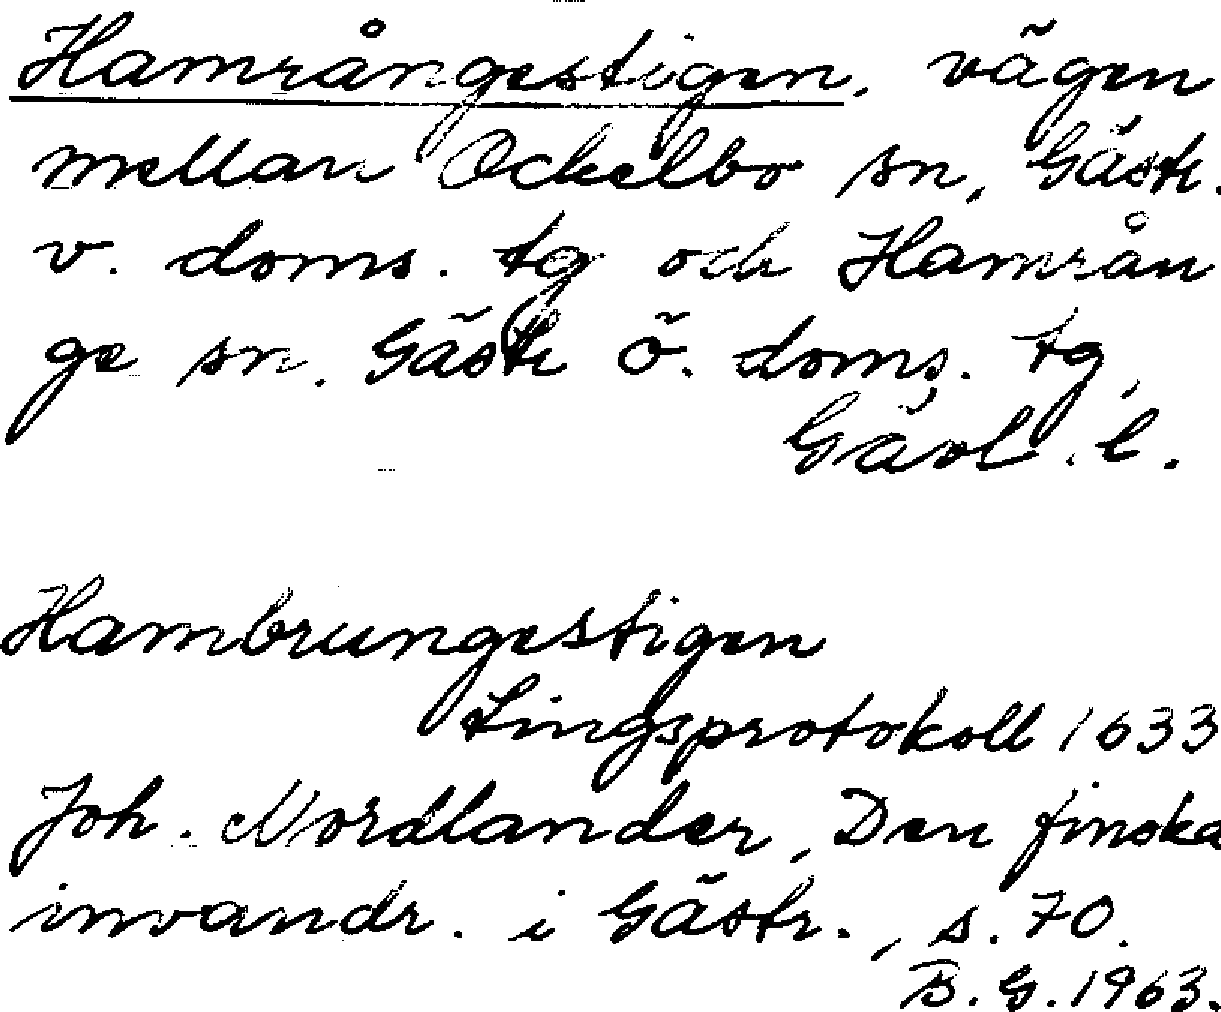 Hamrångestigen, vägen
mellan Ockelbo sn, Gästr.
v. doms. tg och Hamrån
ge sn. Gästr ö. doms. tg,
Gävl. l.
Hambrungestigen
Tingsprotokoll 1633
Joh. Nordlander, Den finska
invandr. i Gästr., s. 70.
B. G. 1963.